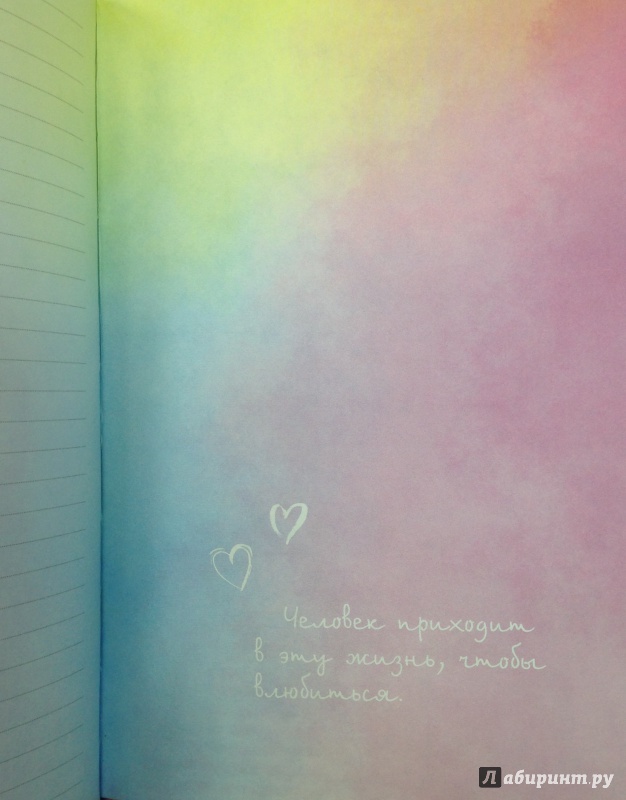 Человек приходит
в эту жизнь, чтобы
влюбиться.
Лабиринт.ру